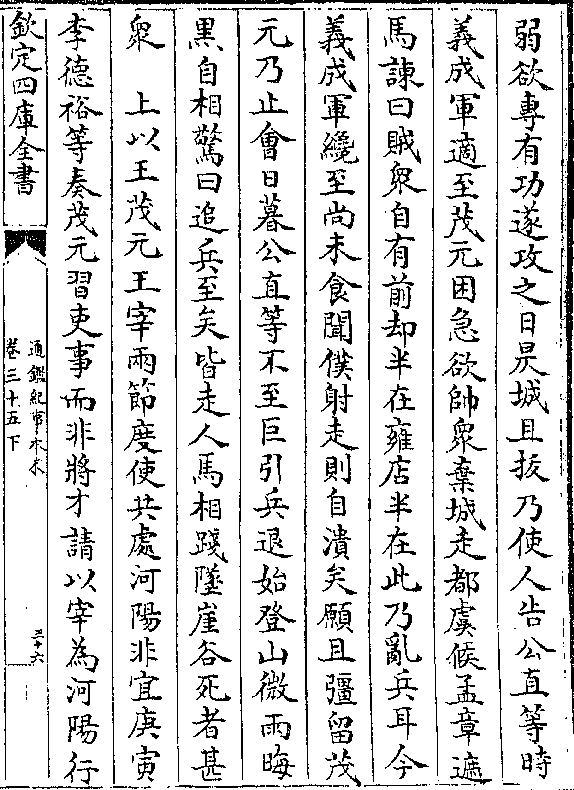 弱欲專有功遂攻之日昃城且拔乃使人告公直等時
義成軍適至茂元困急欲帥衆棄城走都虞候孟章遮
馬諫曰賊衆自有前却半在雍店半在此乃亂兵耳今
義成軍纔至尚未食聞僕射走則自潰矣願且彊留茂
元乃止會日暮公直等不至巨引兵退始登山微雨晦
黑自相驚曰追兵至矣皆走人馬相踐墜崖谷死者甚
衆　上以王茂元王宰兩節度使共處河陽非宜庚寅
李德裕等奏茂元習吏事而非將才請以宰為河陽行
欽定四庫全書
通鑑紀事本末
卷三十五下
三十六